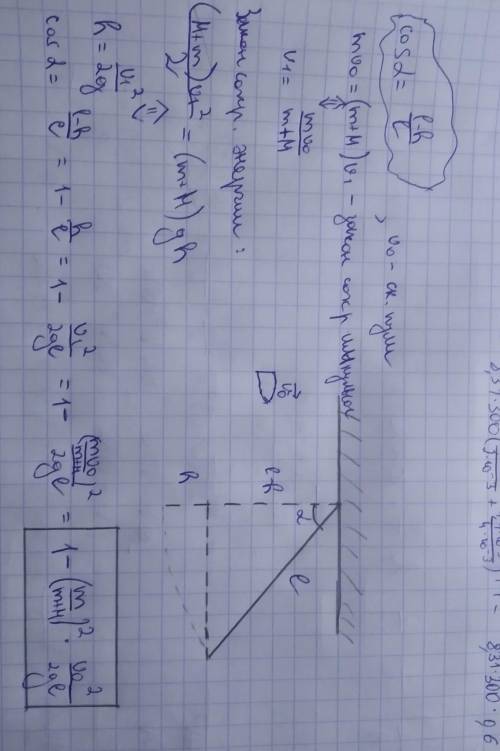 cos α = (l-h)/l , v₀ - ск. пули
mv₀ = (m+M)v₁ - закон сохр импульсов
⇓
v₁ = mv₀/(m+M)
Закон сохр. энергии:
(M+m)v₁²/2 = (m+M)gh
⇓
h = v₁²/2g
cos α = (l-h)/l = 1 - h/l = 1 - v₁²/2gl = 1 - (mv₀/(m+M))²/2gl = 1 - (m/(m+M))² · v₀²/2gl
v₀
α
l
l-h
h
8,31·300·9,6